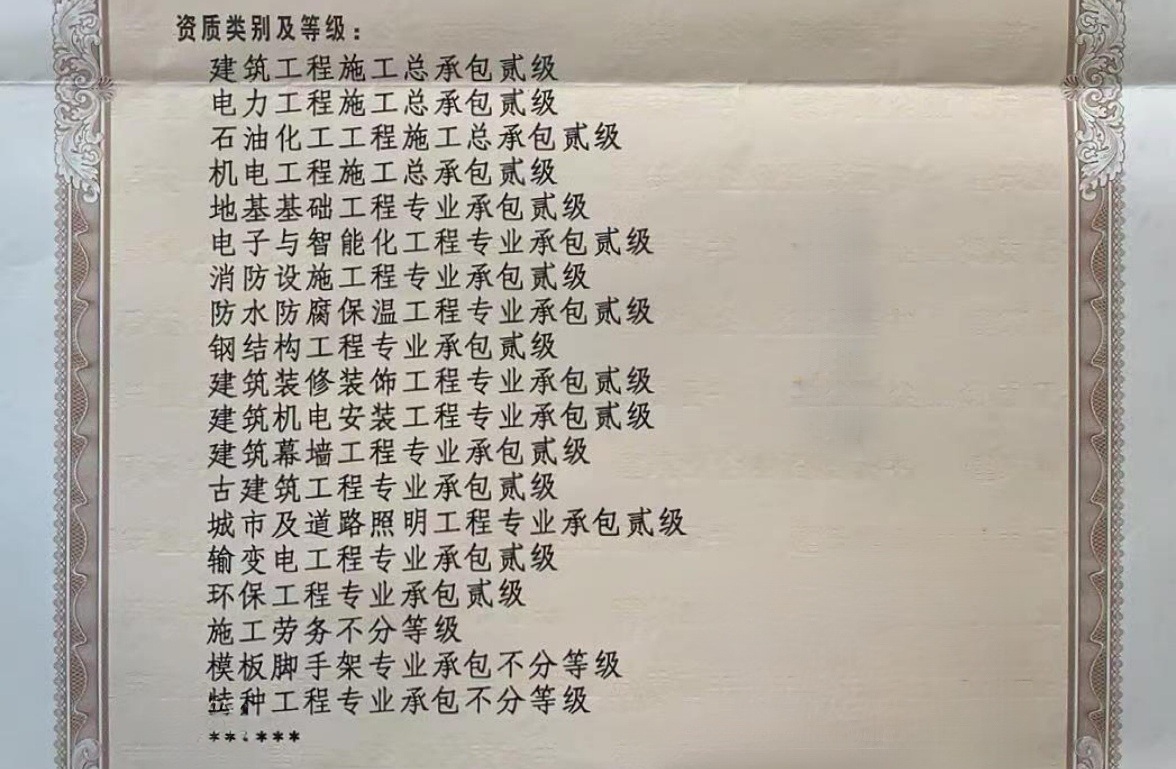 资质类别及等级：
建筑工程施工总承包贰级
电力工程施工总承包贰级
石油化工工程施工总承包贰级
机电工程施工总承包贰级
地基基础工程专业承包贰级
电子与智能化工程专业承包贰级
消防设施工程专业承包贰级
防水防腐保温工程专业承包贰级
钢结构工程专业承包贰级
建筑装修装饰工程专业承包贰级
建筑机电安装工程专业承包贰级
建筑幕墙工程专业承包贰级
古建筑工程专业承包贰级
城市及道路照明工程专业承包贰级
输变电工程专业承包贰级
环保工程专业承包贰级
施工劳务不分等级
模板脚手架专业承包不分等级
特种工程专业承包不分等级
******